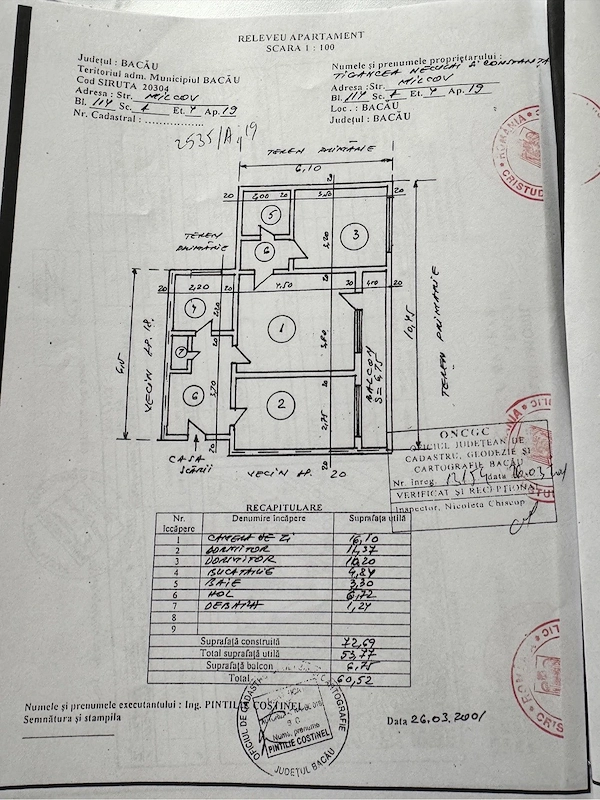 RELEVEU APARTAMENT
SCARA 1 : 100
Județul : BACĂU
Teritoriul adm. Municipiul BACĂU
Cod SIRUTA 20304
Adresa : Str. MILCOV
Bl. 114 Sc. 1 Et. 4 Ap. 19
Nr. Cadastral :
2535/A; 19
Numele și prenumele proprietarului :
Adresa :Str. MILCOV
Bl. 114 Sc. 1 Et. 4 Ap. 19
Loc. : BACĂU
Județul : BACĂU
TEREN PRIMĂRIE
6,10
20 2,00 20 3,50 20
5
6
3
3,20
TEREN
PRIMĂRIE
20 2,20 20 4,50 20 1,10 20
4
2,20
1
3,60
7
6
3,70
2
2,75
BALCON
S = 6,75
10,45
TEREN PRIMĂRIE
VECIN AP. 18
CASA
SCĂRII
VECIN AP. 20
ONCGC
OFICIUL JUDEȚEAN DE
CADASTRU, GEODEZIE ȘI
CARTOGRAFIE BACĂU
Nr. înreg. data
VERIFICAT ȘI RECEPȚIONAT
Inspector, Nicoleta Chiscop
RECAPITULARE
Nr. încăpere Denumire încăpere Suprafața utilă
1 CAMERA DE ZI 16,10
2 DORMITOR 11,37
3 DORMITOR 10,20
4 BUCATARIE 4,84
5 BAIE 3,30
6 HOL 6,72
7 DEBARA 1,24
8
9
Suprafață construită 72,69
Total suprafață utilă 53,77
Suprafață balcon 6,75
Total 60,52
Numele și prenumele executantului : Ing. PINTILIE COSTINEL
Semnătura și stampila
Data 26.03.2001
OFICIUL DE CADASTRU CARTOGRAFIE
Nume, prenume
PINTILIE COSTINEL
JUDEȚUL BACĂU
ROMANIA
CRISTUD